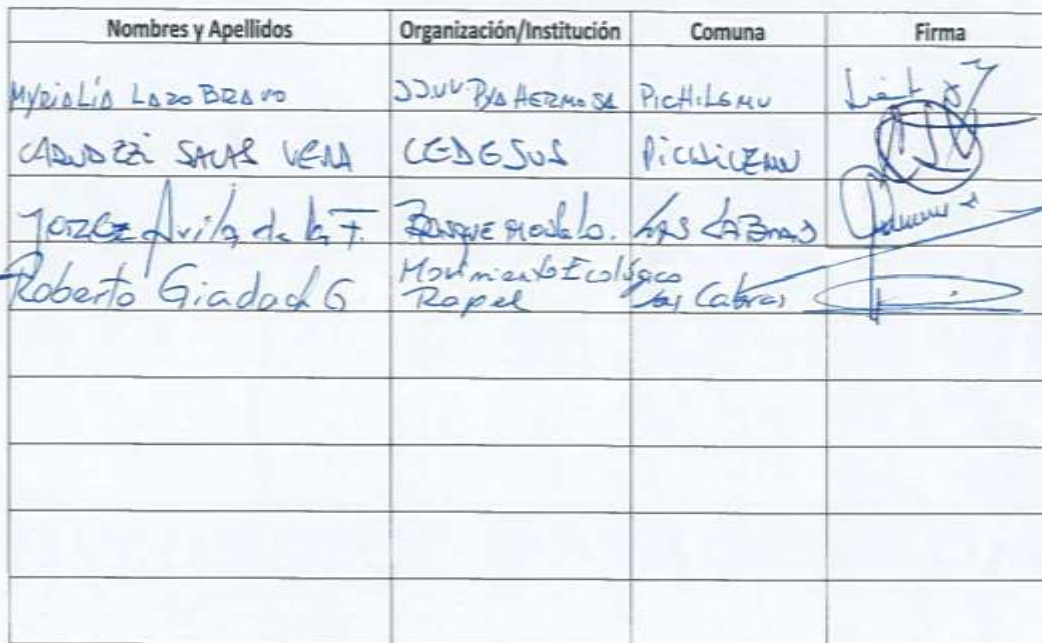 Nombres y Apellidos Organización/Institución Comuna Firma
Myrialia Lazo Bravo JJ.VV. Pya Hermosa Pichilemu
Salas Vera CEDESUS Pichilemu
Jorge Avila de la F. Bosque Modelo. Las Cabras
Roberto Giadach G Movimiento Ecológico
Rapel Las Cabras